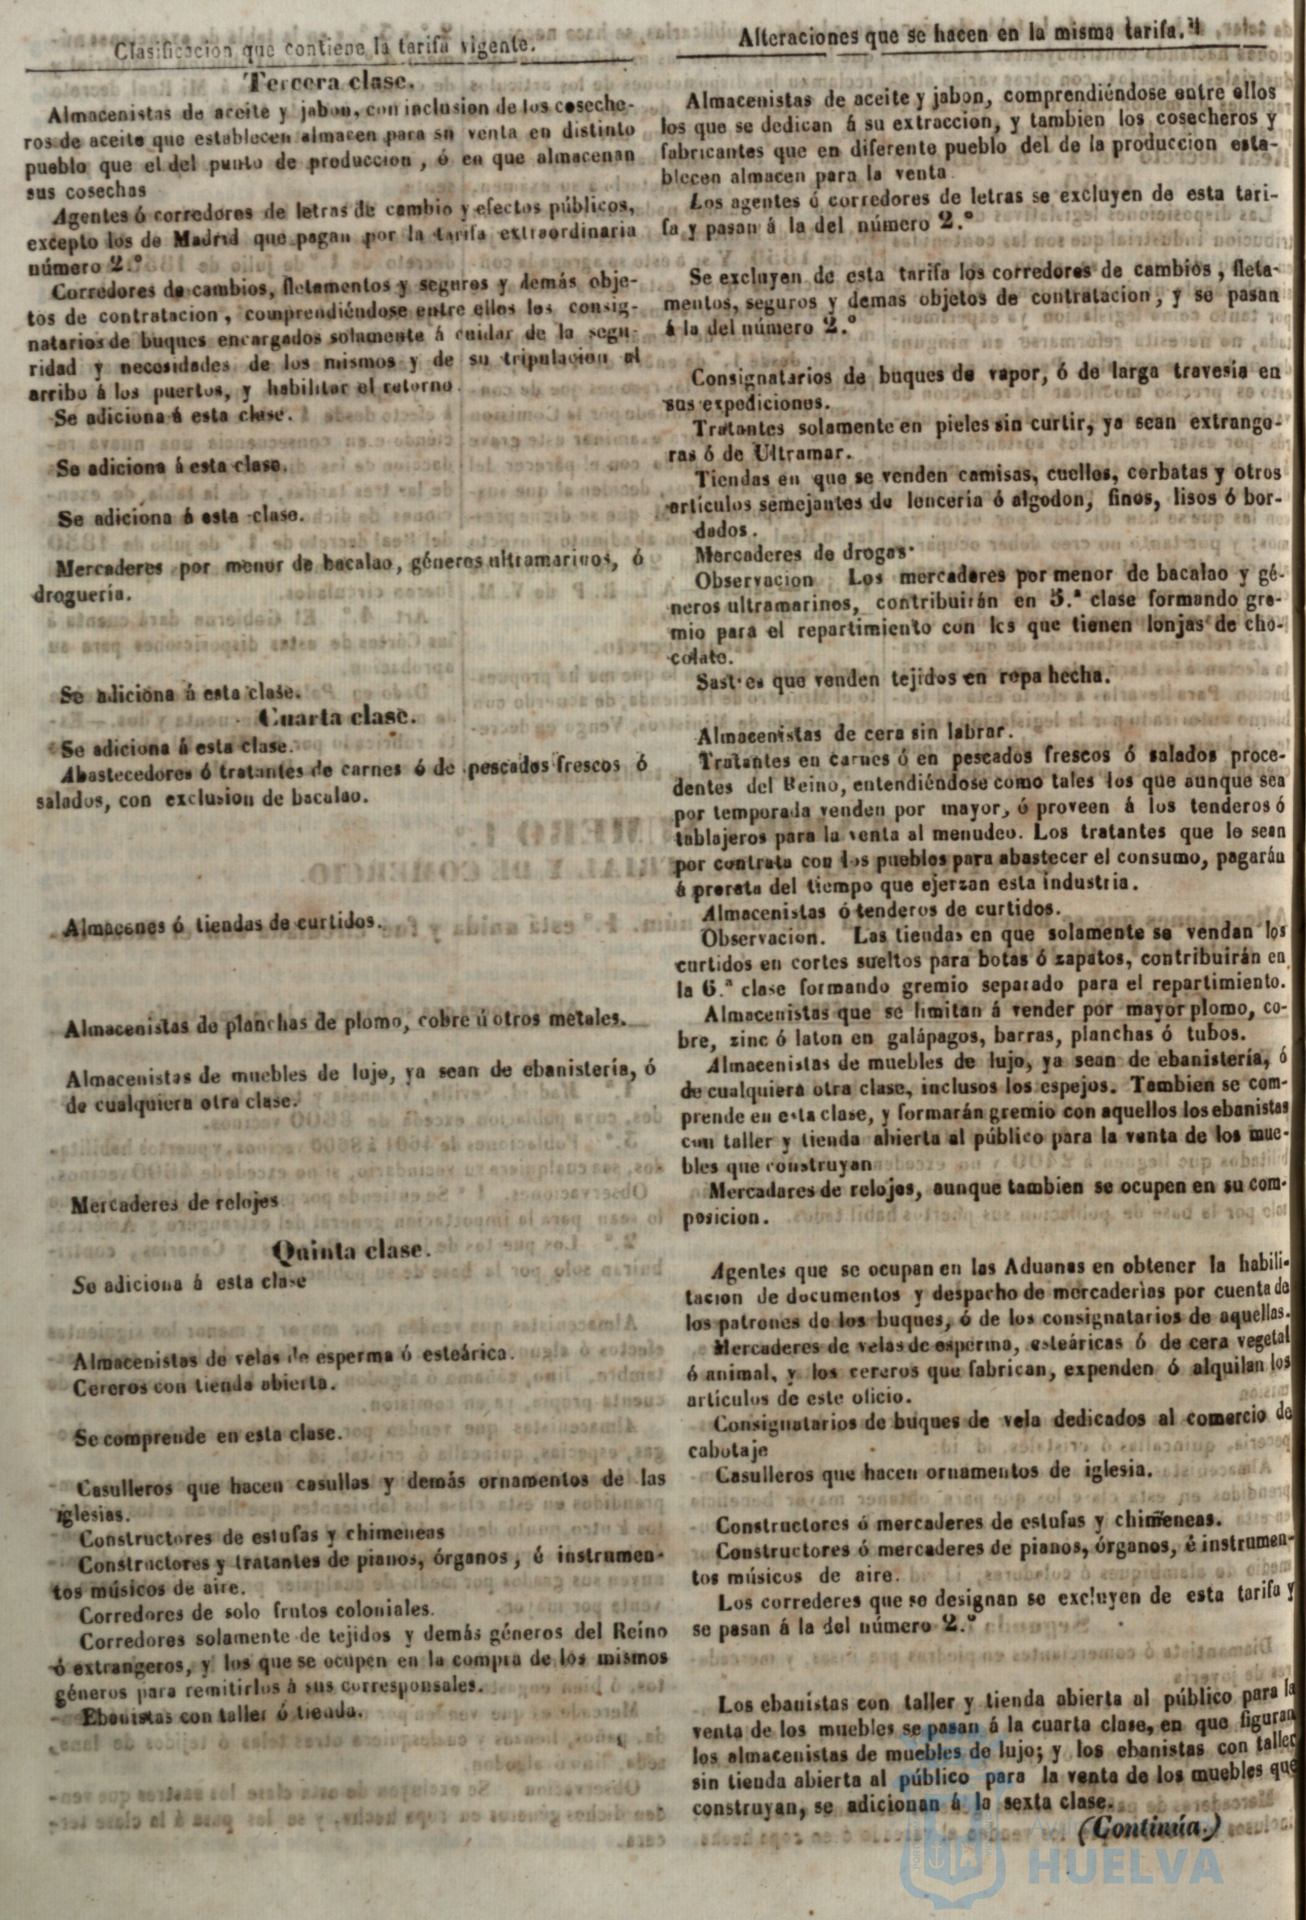 Clasificacion que contiene la tarifa vigente.
Tercera clase.
Almacenistas de aceite y jabon, con inclusion de los coseche-
ros de aceite que establecen almacen para su venta en distinto
pueblo que el del punto de produccion, ó en que almacenan
sus cosechas
Agentes ó corredores de letras de cambio y efectos públicos,
excepto los de Madrid que pagan por la tarifa extraordinaria
número 2.º
Corredores de cambios, fletamentos y seguros y demás obje-
tos de contratacion, comprendiéndose entre ellos los consig-
natarios de buques encargados solamente á cuidar de la segu-
ridad y necesidades de los mismos y de su tripulacion al
arribo á los puertos, y habilitar el retorno.
Se adiciona á esta clase.
Se adiciona á esta clase.
Se adiciona á esta clase.
Mercaderes por menor de bacalao, géneros ultramarinos, ó
droguería.
Se adiciona á esta clase.
Cuarta clase.
Se adiciona á esta clase.
Abastecedores ó tratantes de carnes ó de pescados frescos ó
salados, con exclusion de bacalao.
Almacenes ó tiendas de curtidos.
Almacenistas de planchas de plomo, cobre ú otros metales.
Almacenistas de muebles de lujo, ya sean de ebanistería, ó
de cualquiera otra clase.
Mercaderes de relojes
Quinta clase.
Se adiciona á esta clase
Almacenistas de velas de esperma ó esteárica.
Cereros con tienda abierta.
Se comprende en esta clase.
Casulleros que hacen casullas y demás ornamentos de las
iglesias.
Constructores de estufas y chimeneas
Constructores y tratantes de pianos, órganos, é instrumen-
tos músicos de aire.
Corredores de solo frutos coloniales.
Corredores solamente de tejidos y demás géneros del Reino
ó extrangeros, y los que se ocupen en la compra de los mismos
géneros para remitirlos á sus corresponsales.
Ebanistas con taller ó tienda.
Alteraciones que se hacen en la misma tarifa.
Almacenistas de aceite y jabon, comprendiéndose entre ellos
los que se dedican á su extraccion, y tambien los cosecheros y
fabricantes que en diferente pueblo del de la produccion esta-
blecen almacen para la venta
Los agentes ó corredores de letras se excluyen de esta tari-
fa y pasan á la del número 2.º
Se excluyen de esta tarifa los corredores de cambios, fleta-
mentos, seguros y demas objetos de contratacion, y se pasan
á la del número 2.º
Consignatarios de buques de vapor, ó de larga travesía en
sus expediciones.
Tratantes solamente en pieles sin curtir, ya sean extrange-
ras ó de Ultramar.
Tiendas en que se venden camisas, cuellos, corbatas y otros
artículos semejantes de lencería ó algodon, finos, lisos ó bor-
dados.
Mercaderes de drogas.
Observacion Los mercaderes por menor de bacalao y gé-
neros ultramarinos, contribuirán en 5.ª clase formando gre-
mio para el repartimiento con los que tienen lonjas de cho-
colate.
Sastres que venden tejidos en ropa hecha.
Almacenistas de cera sin labrar.
Tratantes en carnes ó en pescados frescos ó salados proce-
dentes del Reino, entendiéndose como tales los que aunque sea
por temporada venden por mayor, ó proveen á los tenderos ó
tablajeros para la venta al menudeo. Los tratantes que lo sean
por contrata con los pueblos para abastecer el consumo, pagarán
á prorata del tiempo que ejerzan esta industria.
Almacenistas ó tenderos de curtidos.
Observacion. Las tiendas en que solamente se vendan los
curtidos en cortes sueltos para botas ó zapatos, contribuirán en
la 6.ª clase formando gremio separado para el repartimiento.
Almacenistas que se limitan á vender por mayor plomo, co-
bre, zinc ó laton en galápagos, barras, planchas ó tubos.
Almacenistas de muebles de lujo, ya sean de ebanistería, ó
de cualquiera otra clase, inclusos los espejos. Tambien se com-
prende en esta clase, y formarán gremio con aquellos los ebanistas
con taller y tienda abierta al público para la venta de los mue-
bles que construyan
Mercadares de relojes, aunque tambien se ocupen en su com-
posicion.
Agentes que se ocupan en las Aduanas en obtener la habili-
tacion de documentos y despacho de mercaderías por cuenta de
los patrones de los buques, ó de los consignatarios de aquellas.
Mercaderes de velas de esperma, esteáricas ó de cera vegetal
ó animal, y los cereros que fabrican, expenden ó alquilan los
artículos de este oficio.
Consignatarios de buques de vela dedicados al comercio de
cabotaje
Casulleros que hacen ornamentos de iglesia.
Constructores ó mercaderes de estufas y chimeneas.
Constructores ó mercaderes de pianos, órganos, é instrumen-
tos músicos de aire.
Los correderes que se designan se excluyen de esta tarifa y
se pasan á la del número 2.º
Los ebanistas con taller y tienda abierta al público para la
venta de los muebles se pasan á la cuarta clase, en que figuran
los almacenistas de muebles de lujo; y los ebanistas con taller
sin tienda abierta al público para la venta de los muebles que
construyan, se adicionan á la sexta clase.
(Continúa.)
HUELVA